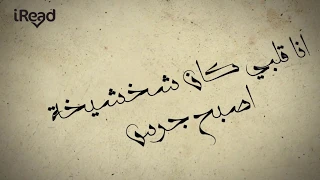 iRead
انا قلبي كان شخشيخة
اصبح جرس